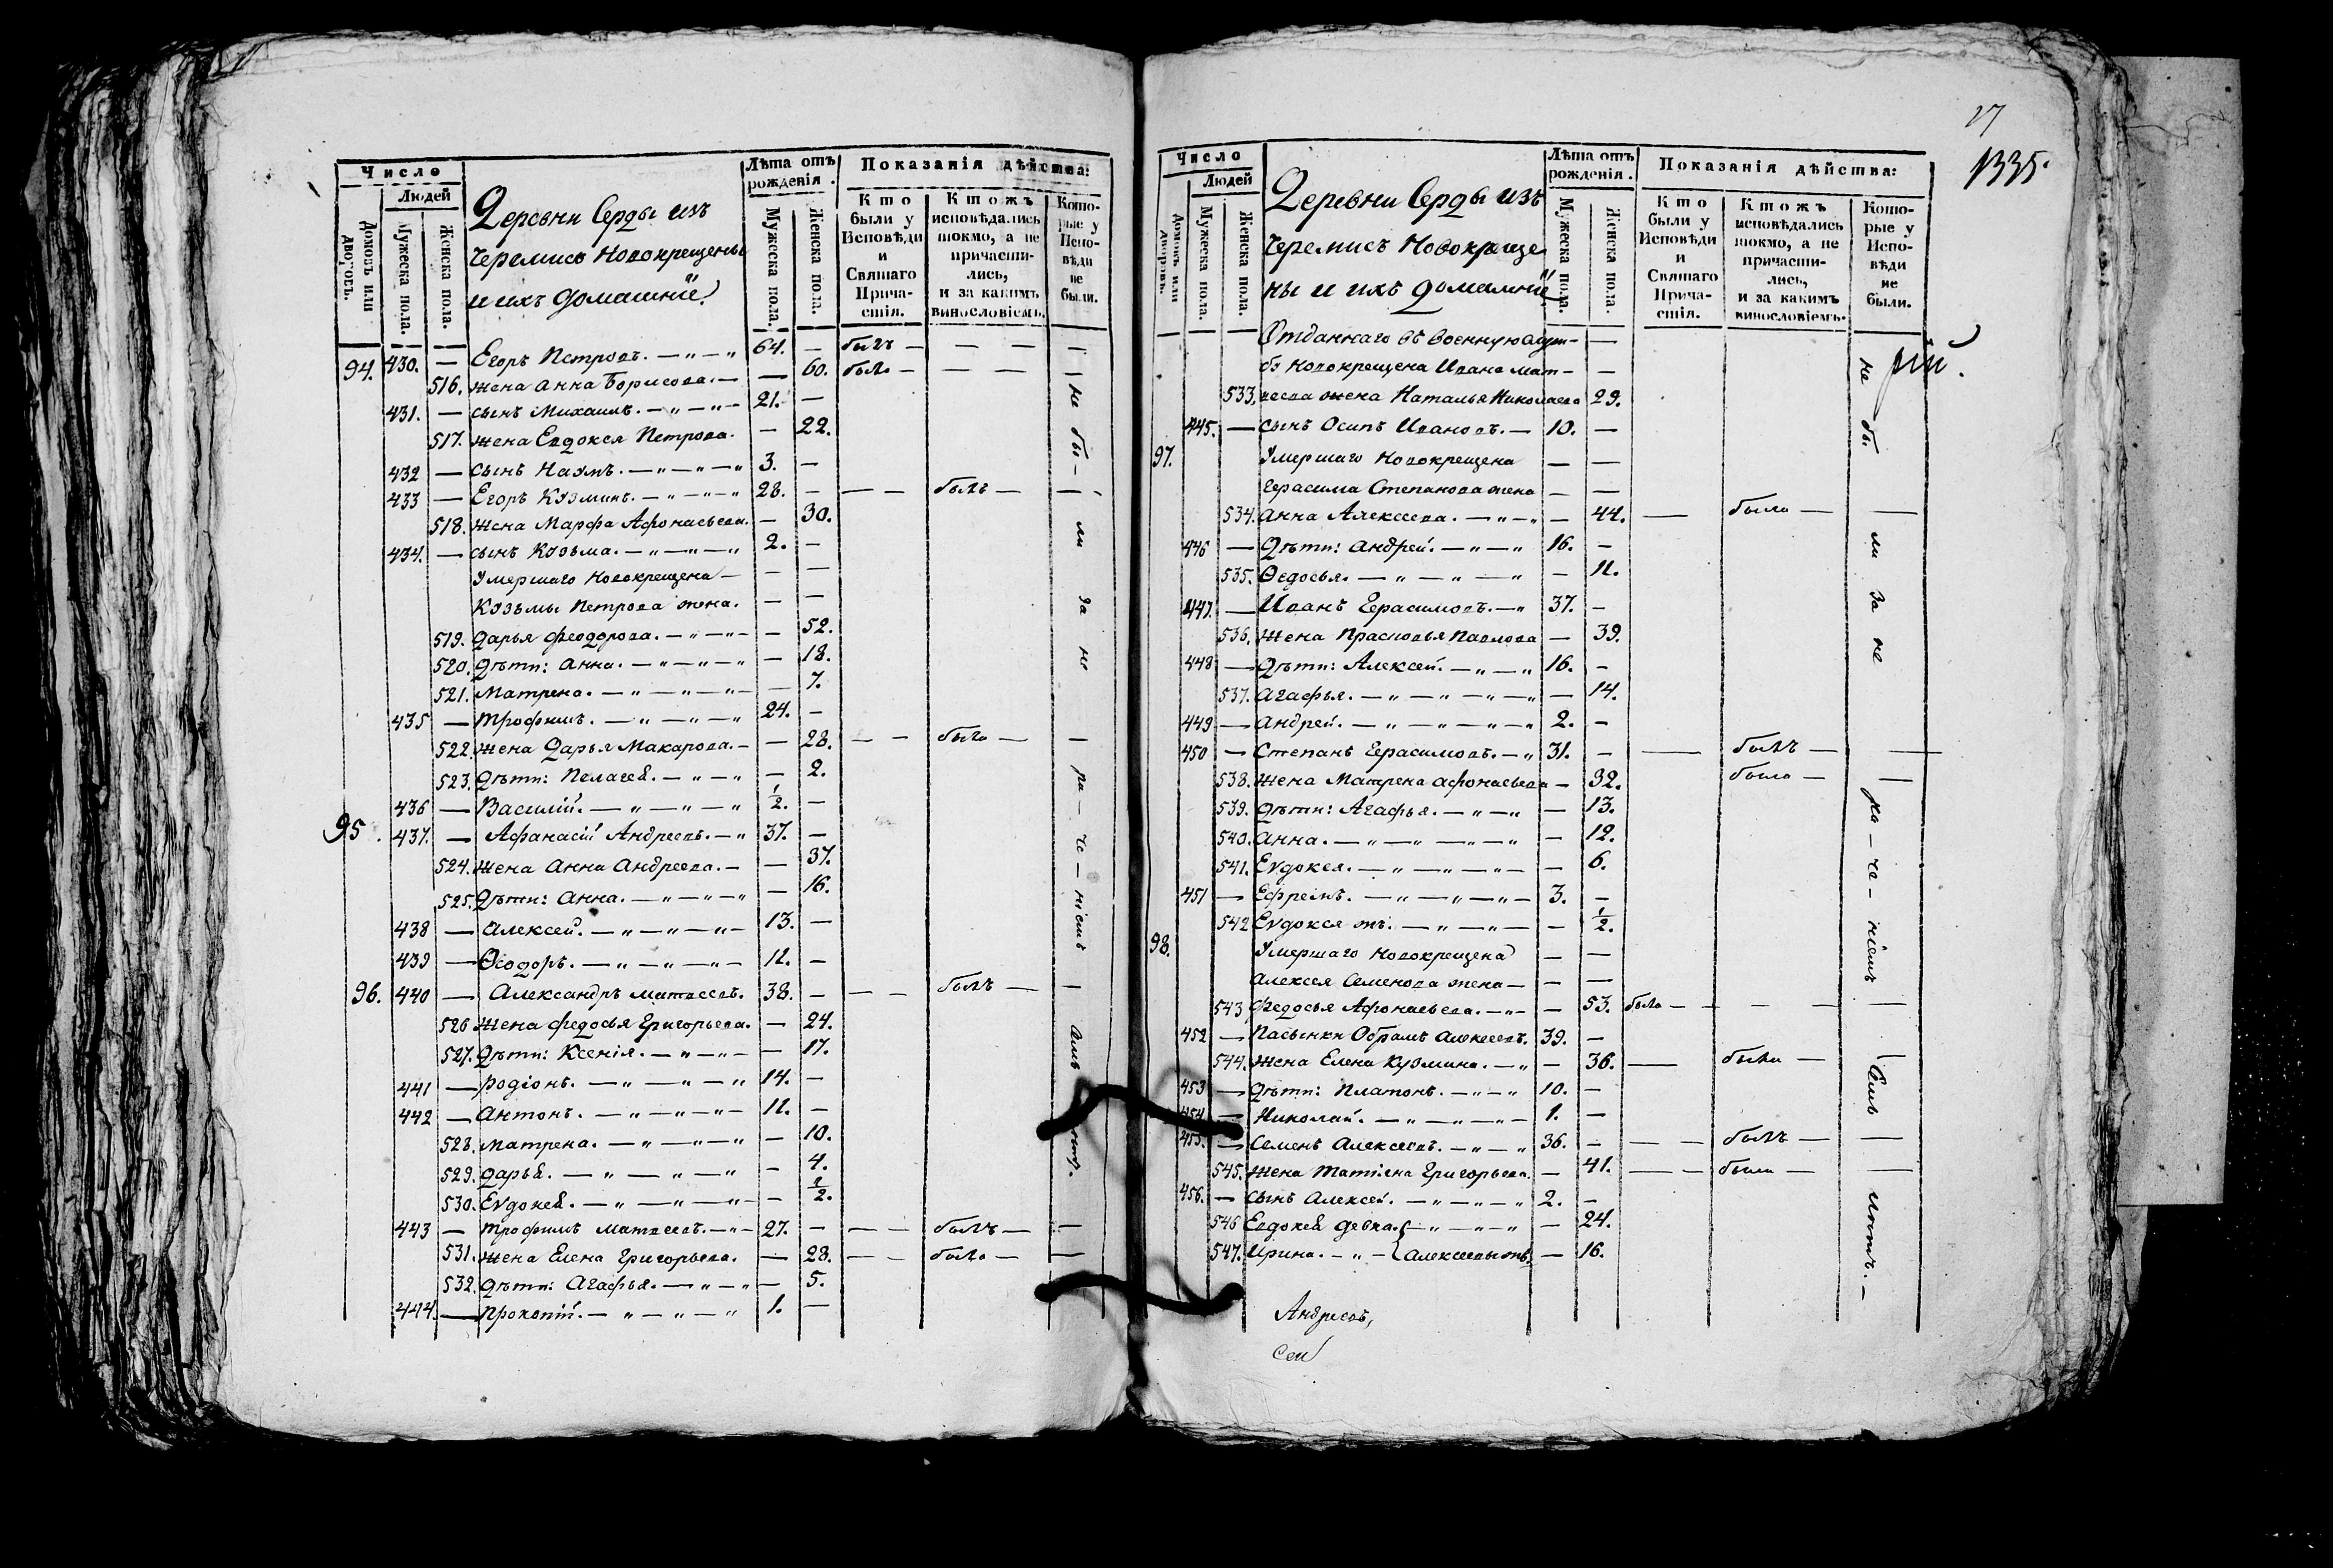 Число
Людей
Домовъ или дворовъ.
Мужеска пола.
Женска пола.
Деревни Серды изъ
Черемисъ Новокрещены
и ихъ домашніе.
Лѣта отъ рожденія.
Мужеска пола.
Женска пола.
Показанія дѣйства:
Кто были у Исповѣди и Святаго Прича-стія.
Ктожъ исповѣдались токмо, а не причасти-лись, и за какимъ винословіемъ.
Кото-рые у Испо-вѣди не были.
94. 430. — Егоръ Петровъ. — „ — „ 64. — былъ — — — —
516. жена Анна Борисова. — — 60. была — — — —
431. — сынъ Михаилъ. — „ — „ — 21. —
517. жена Евдокея Петрова. — 22.
432 — сынъ Наумъ. — „ — „ — „ 3. —
433 — Егоръ Козминъ. — „ — „ — „ 28. — — — былъ — —
518. жена Марфа Афонасьева. — 30.
434. — сынъ Козьма. — „ — „ — „ 2. —
Умершаго Новокрещена — — —
Козьмы Петрова жена. — —
519. Дарья Феодорова. — „ — „ — — 52.
520. Дѣти: Анна. — „ — „ — „ — 18.
521. Матрена. — „ — „ — „ — — 7.
435 — Трофимъ. — „ — „ — „ 24. —
522. жена Дарья Макарова. — — 28. — — была — —
523. Дѣти: Пелагея. — „ — „ — 2.
436 — Василій. — „ — „ — „ 1/2. —
95. 437. — Афанасій Андреевъ. — „ 37. —
524. жена Анна Андреева. — — 37.
525. Дѣти: Анна. — „ — „ — „ — 16.
438 — Алексей. — „ — „ — „ — 13. —
439 — Ѳеодоръ. — „ — „ — „ — 11. —
96. 440 — Александръ Матвеевъ. 38. — — — былъ — —
526 жена Федосья Григорьева. — 24.
527. Дѣти: Ксенія. — „ — „ — — 17.
441 — Родіонъ. — „ — „ — „ 14. —
442 — Антонъ. — „ — „ — „ — 11. —
528. Матрена. — „ — „ — „ — 10.
529. Дарья. — „ — „ — „ — 4.
530. Еѵдокея. — „ — „ — „ — — 1/2.
443 — Трофимъ Матвеевъ. — „ — 27. — — — былъ — —
531. жена Елена Григорьева. — 28. — — была — —
532. Дѣти: Агафья. — „ — „ — 5.
444. — Прокопій. — „ — „ — „ 1. —
не бы — ли за не ра — че — ніемъ
17
1335.
Число
Людей
Домовъ или дворовъ.
Мужеска пола.
Женска пола.
Деревни Серды изъ
Черемисъ Новокреще
ны и ихъ домашніе
Лѣта отъ рожденія.
Мужеска пола.
Женска пола.
Показанія дѣйства:
Кто были у Исповѣди и Святаго Прича-стія.
Ктожъ исповѣдались токмо, а не причасти-лись, и за какимъ винословіемъ.
Кото-рые у Испо-вѣди не были.
Отданнаго въ военную служ- —
бу Новокрещена Ивана Мат- — —
533. веева жена Наталья Николаева 29.
445. — сынъ Осипъ Ивановъ. — 10. —
97. Умершаго Новокрещена — —
Герасима Степанова жена — —
534. Анна Алексеева. — „ — „ — 44. — была — —
446 — Дѣти: Андрей. — „ — „ 16. —
535. Ѳедосья. — „ — „ — „ — 11.
447. — Иванъ Герасимовъ. — „ 37. —
536. жена Прасковья Павлова — 39.
448 — Дѣти: Алексей. — „ — „ 16. —
537. Агафья. — „ — „ — „ — „ — 14.
449 — Андрей. — „ — „ — „ — „ 2. —
450 — Степанъ Герасимовъ. — „ 31. — — былъ — —
538. жена Матрена Афонасьева — 32. была — —
539. Дѣти: Агафья. — „ — „ — 13.
540. Анна. — „ — „ — „ — „ — 12.
541. Еѵдокея. — „ — „ — „ — — 6.
451 — Ефремъ. — „ — „ — „ — 3. —
542 Еѵдокея жъ. — „ — „ — — 1/2.
98. Умершаго Новокрещена — —
Алексея Семенова жена — — —
543 Федосья Афонасьева. — „ — — 53. была — — — — —
452 — Пасынки Обрамъ Алексеевъ. 39. —
544. жена Елена Кузмина. — „ — 36. — была —
453 — Дѣти: Платонъ. — „ — „ 10. —
454 — Николай. — „ — „ — „ — 1. —
455. — Семенъ Алексеевъ. — „ — „ 36. — — — былъ — —
545. жена Татіяна Григорьева. — 41. — — была — —
456. — сынъ Алексей. — „ — „ — „ 2. —
546 Евдокея девка. — „ — „ — „ — 24.
547. Ирина. — „ — Алексеевы жъ — 16.
не бы ли за не ра — че — ніемъ
Андреевъ,
Сем